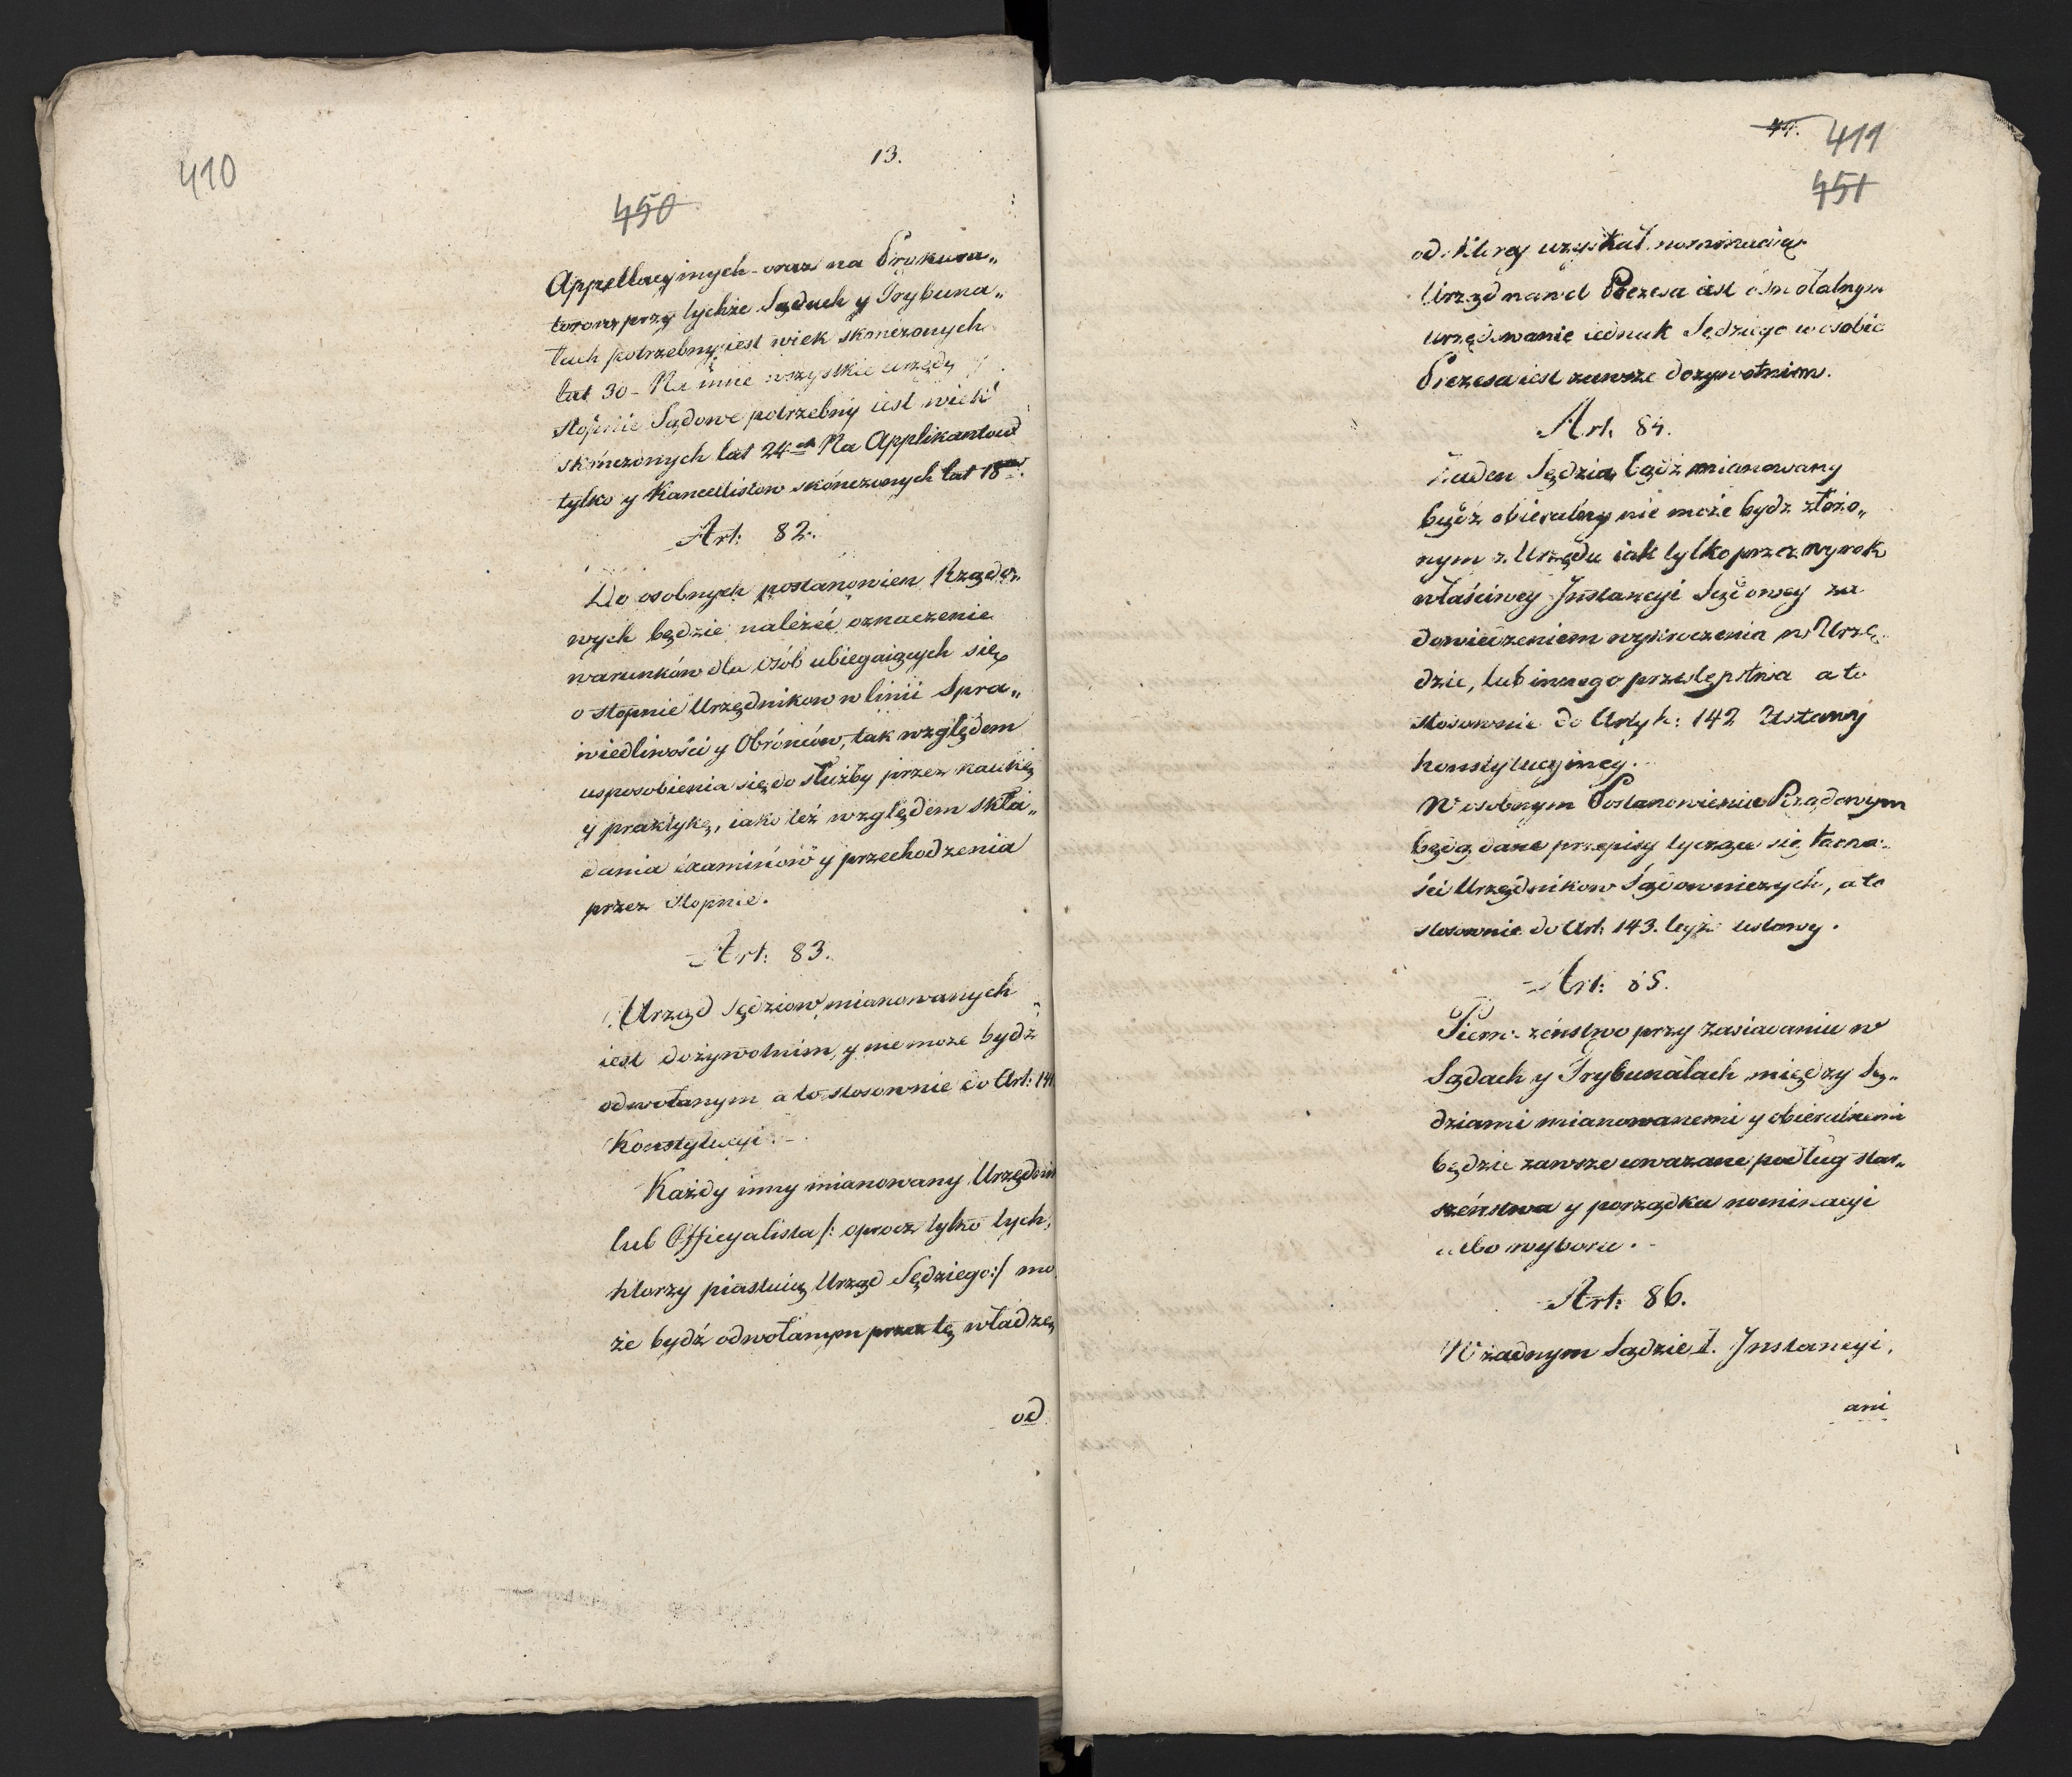 410
13.
450
Appellacyinych oraz na Prokura„
torow przy tychże Sądach y Trybuna„
łach potrzebny iest wiek skończonych
lat 30 – Na inne wszystkie urzędy y
stopnie Sądowe potrzebny iest wiek
skończonych lat 24 Na Applikantow
tylko y Kancellistow skończonych lat 18
Art: 82.
Do osobnych postanowien Rządo„
wych będzie należéć oznaczenie
warunków dla osób ubiegaiących się
o stopnie Urzędnikow w linii Spra„
wiedliwości y Obrońców, tak względem
usposobienia się do służby przez naukę
y praktykę, iako też względem skła„
dania examinów y przechodzenia
przez stopnie.
Art: 83.
Urząd Sędziow mianowanych
iest dożywotnim, y nie może bydź
odwołanym a to stosownie do Art: 141
Konstytucyi. –
Każdy inny mianowany Urzędnik
lub Officyalista /: oprocz tylko tych,
ktorzy piastuią Urząd Sędziego :/ mo
że bydź odwołanym przez tę władzę,
od
411
451
od ktorey uzyskał nominacią.
Urząd nawet Prezesa iest odwołalnym
urzędowanie iednak Sędziego w osobie
Prezesa iest zawsze dożywotnim.
Art. 84.
Żaden Sędzia bądź mianowany
bądź obieralny nie może bydz złożo„
nym z Urzędu iak tylko przez wyrok
właściwey Instancyi Sądowey za
dowiedzeniem wykroczenia w Urzę„
dzie, lub innego przestępstwa a to
stosownie do Artyk: 142 Ustawy
konstytucyiney.
W osobnym Postanowieniu Rządowym
będą dane przepisy tyczące się karno„
ści Urzędnikow Sądowniczych, a to
stosownie do Art: 143. teyże ustawy.
Art: 85.
Pierwszeństwo przy zasiadaniu w
Sądach y Trybunałach między Sę„
dziami mianowanemi y obieralnemi
będzie zawsze uważane podług star„
szeństwa y porządku nominacyi
albo wyboru. –
Art: 86.
W żadnym Sądzie I. Instancyi,
ani